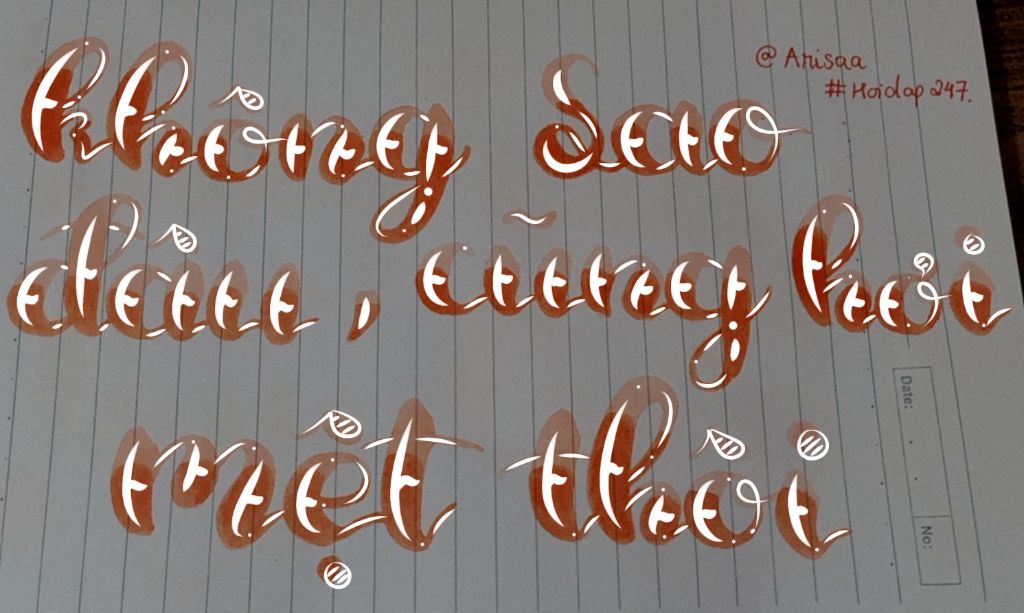 @ Arisaa
#Hoidap247.
không Sao
đâu, cũng hơi
mệt thôi
Date:
No: